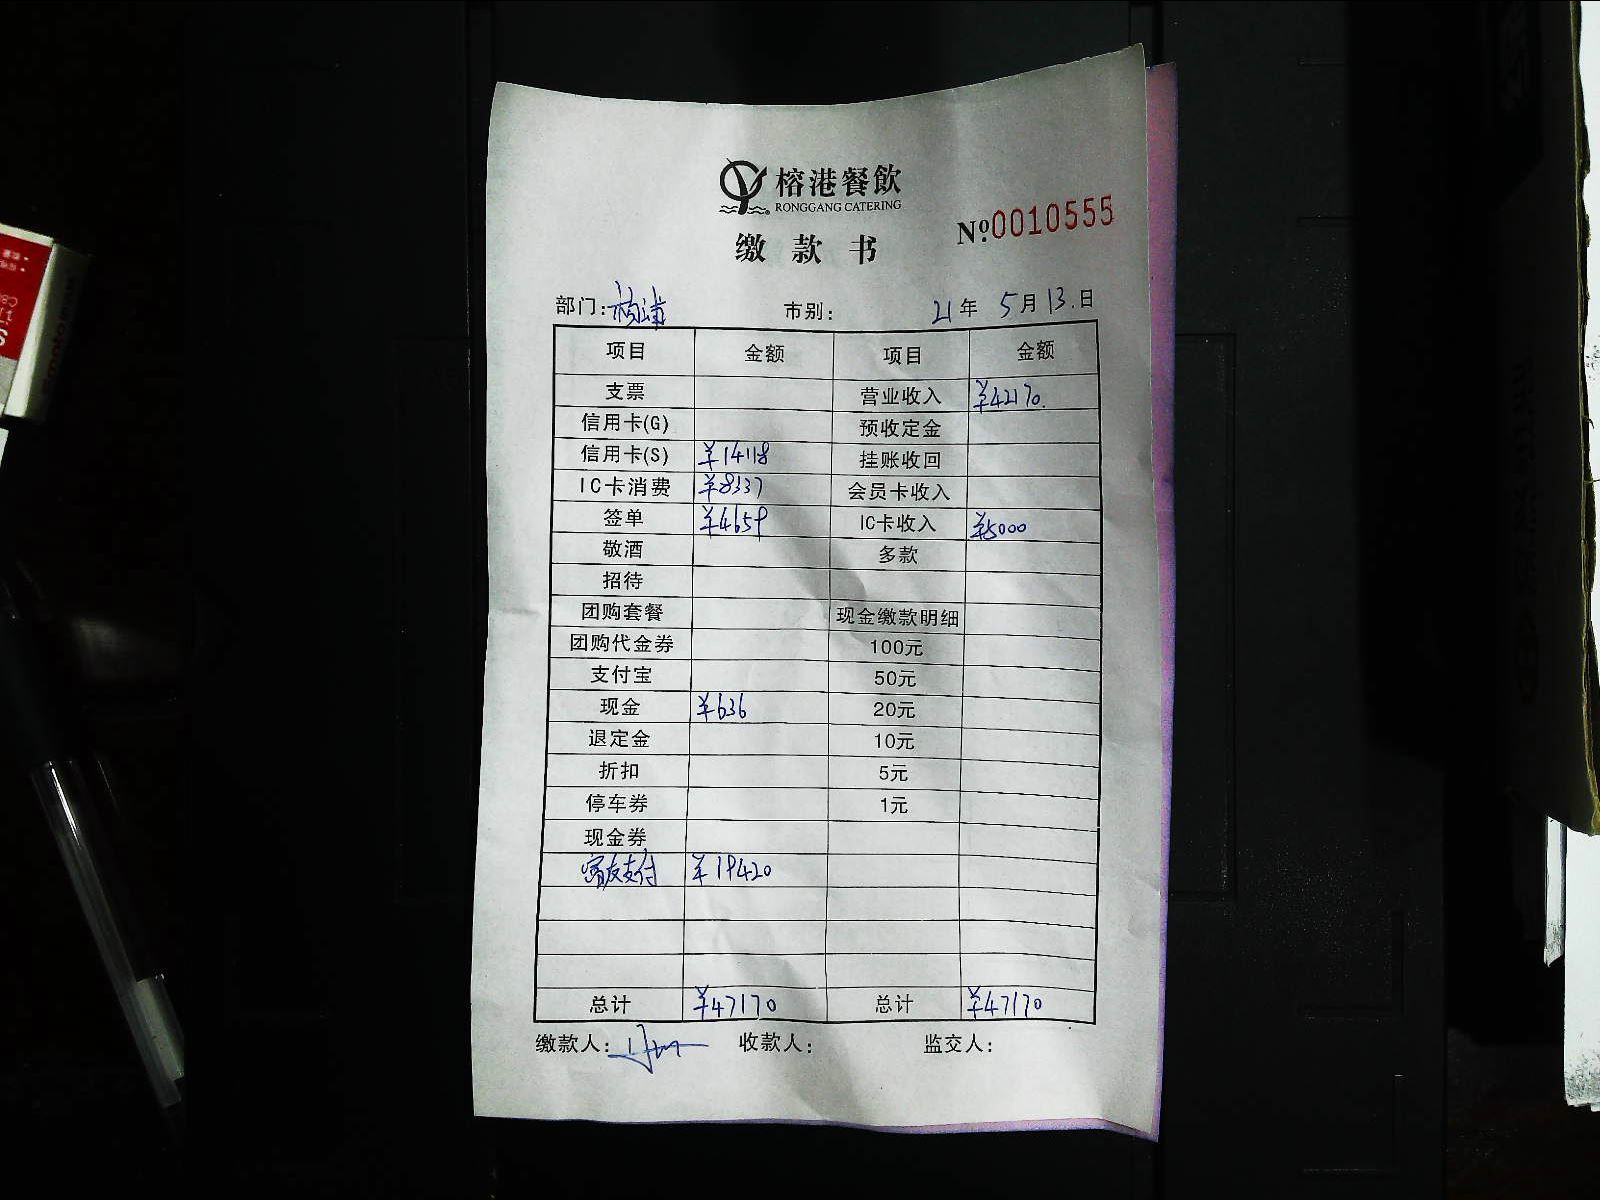 榕港餐飲
RONGGANG CATERING
№0010555
缴款书
部门: 市别: 21年 5月 13.日
项目 金额 项目 金额
支票 营业收入 ¥42170.
信用卡(G) 预收定金
信用卡(S) ¥14118 挂账收回
IC卡消费 ¥8337 会员卡收入
签单 ¥4659 IC卡收入 ¥5000
敬酒 多款
招待
团购套餐 现金缴款明细
团购代金券 100元
支付宝 50元
现金 ¥636 20元
退定金 10元
折扣 5元
停车券 1元
现金券
客友支付 ¥19420
总计 ¥47170 总计 ¥47170
缴款人: 收款人: 监交人: